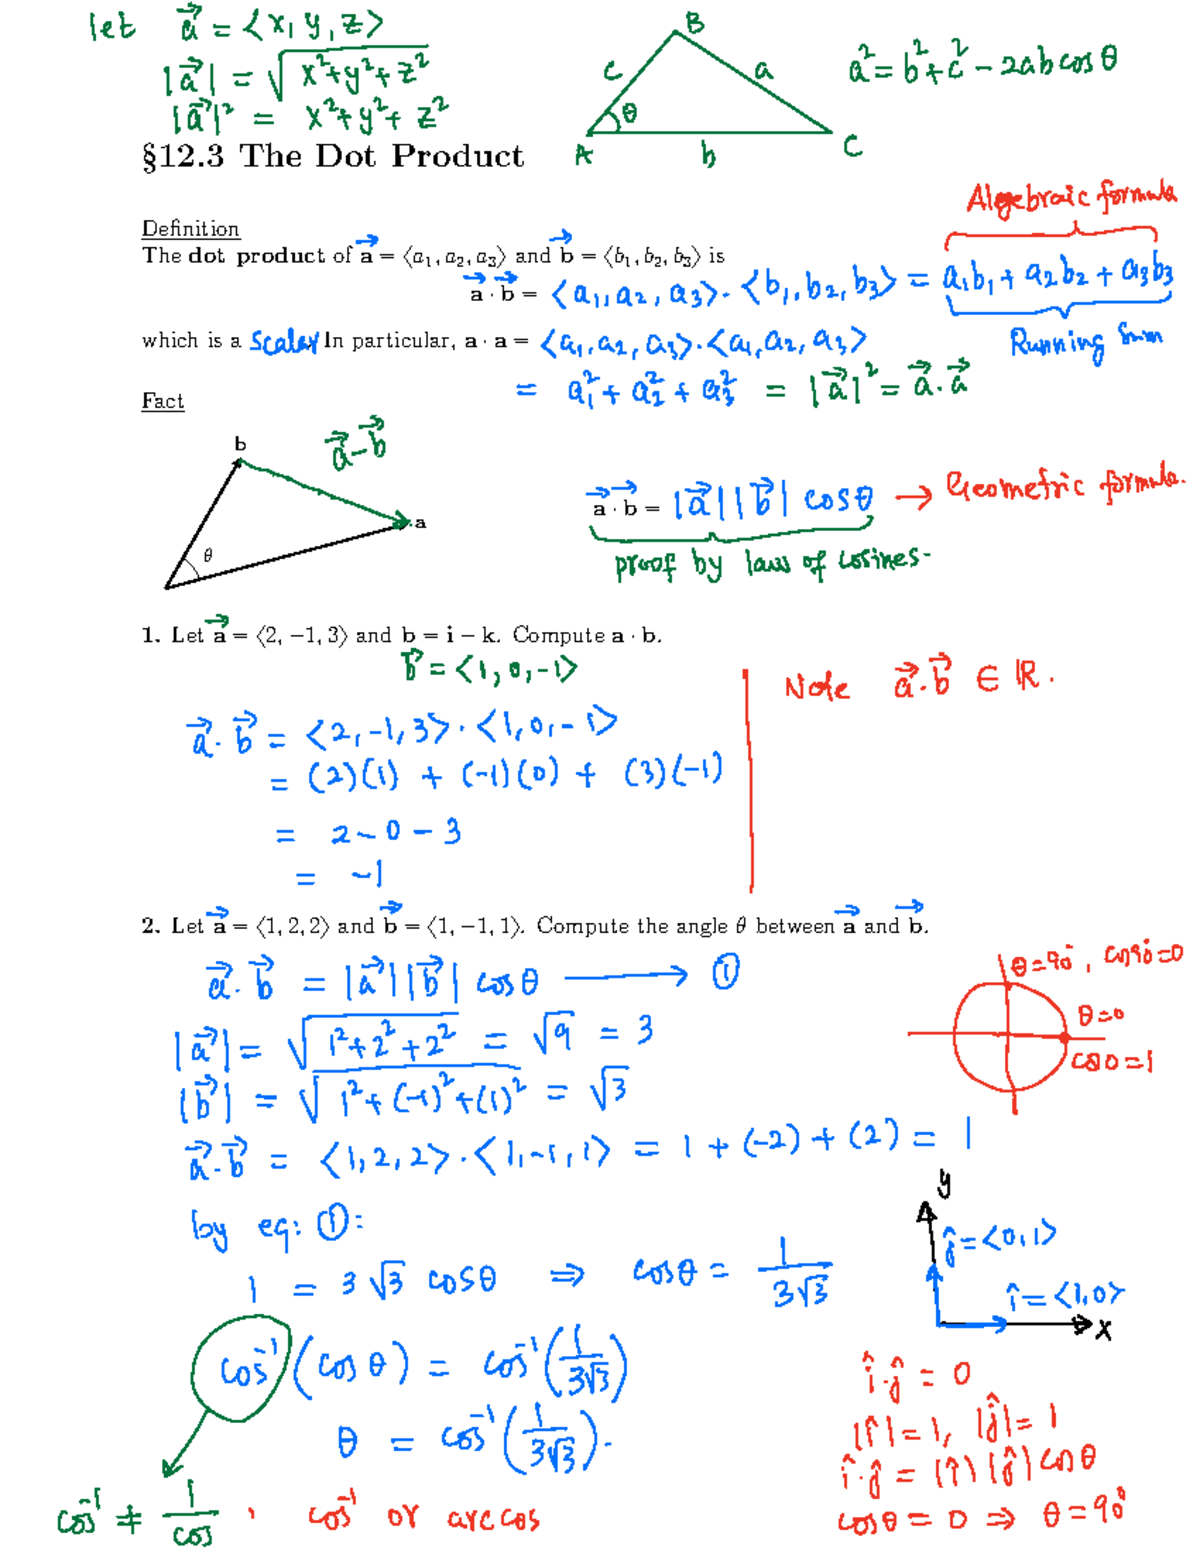 let a⃗ = ⟨x, y, z⟩
|a⃗| = √(x²+y²+z²)
|a⃗|² = x²+y²+z²
B
c
a
θ
A
b
C
a² = b²+c² − 2ab cosθ
§12.3 The Dot Product
Algebraic formula
Definition
The dot product of a⃗ = ⟨a₁, a₂, a₃⟩ and b⃗ = ⟨b₁, b₂, b₃⟩ is
a⃗ · b⃗ = ⟨a₁, a₂, a₃⟩ · ⟨b₁, b₂, b₃⟩ = a₁b₁ + a₂b₂ + a₃b₃
Running Sum
which is a Scalar In particular, a · a = ⟨a₁, a₂, a₃⟩·⟨a₁, a₂, a₃⟩
= a₁² + a₂² + a₃² = |a⃗|² = a⃗·a⃗
Fact
b
a⃗−b⃗
a
θ
a⃗ · b⃗ = |a⃗||b⃗| cosθ → Geometric formula.
proof by law of cosines-
1. Let a⃗ = ⟨2, −1, 3⟩ and b = i − k. Compute a · b.
b⃗ = ⟨1, 0, −1⟩
a⃗·b⃗ = ⟨2, −1, 3⟩·⟨1, 0, −1⟩
= (2)(1) + (−1)(0) + (3)(−1)
= 2 − 0 − 3
= −1
Note a⃗·b⃗ ∈ ℝ.
2. Let a⃗ = ⟨1, 2, 2⟩ and b⃗ = ⟨1, −1, 1⟩. Compute the angle θ between a⃗ and b⃗.
a⃗·b⃗ = |a⃗||b⃗| cosθ ⟶ ①
|a⃗| = √(1²+2²+2²) = √9 = 3
|b⃗| = √(1²+(−1)²+(1)²) = √3
a⃗·b⃗ = ⟨1, 2, 2⟩·⟨1, −1, 1⟩ = 1 + (−2) + (2) = 1
θ=90°, cos90°=0
θ=0
cos0=1
by eq: ①:
1 = 3√3 cosθ ⇒ cosθ = 1/(3√3)
cos⁻¹(cosθ) = cos⁻¹(1/(3√3))
θ = cos⁻¹(1/(3√3)).
cos⁻¹ ≠ 1/cos , cos⁻¹ or arccos
y
ĵ = ⟨0, 1⟩
î = ⟨1, 0⟩
x
î·ĵ = 0
|î| = 1, |ĵ| = 1
î·ĵ = |î||ĵ| cosθ
cosθ = 0 ⇒ θ = 90°